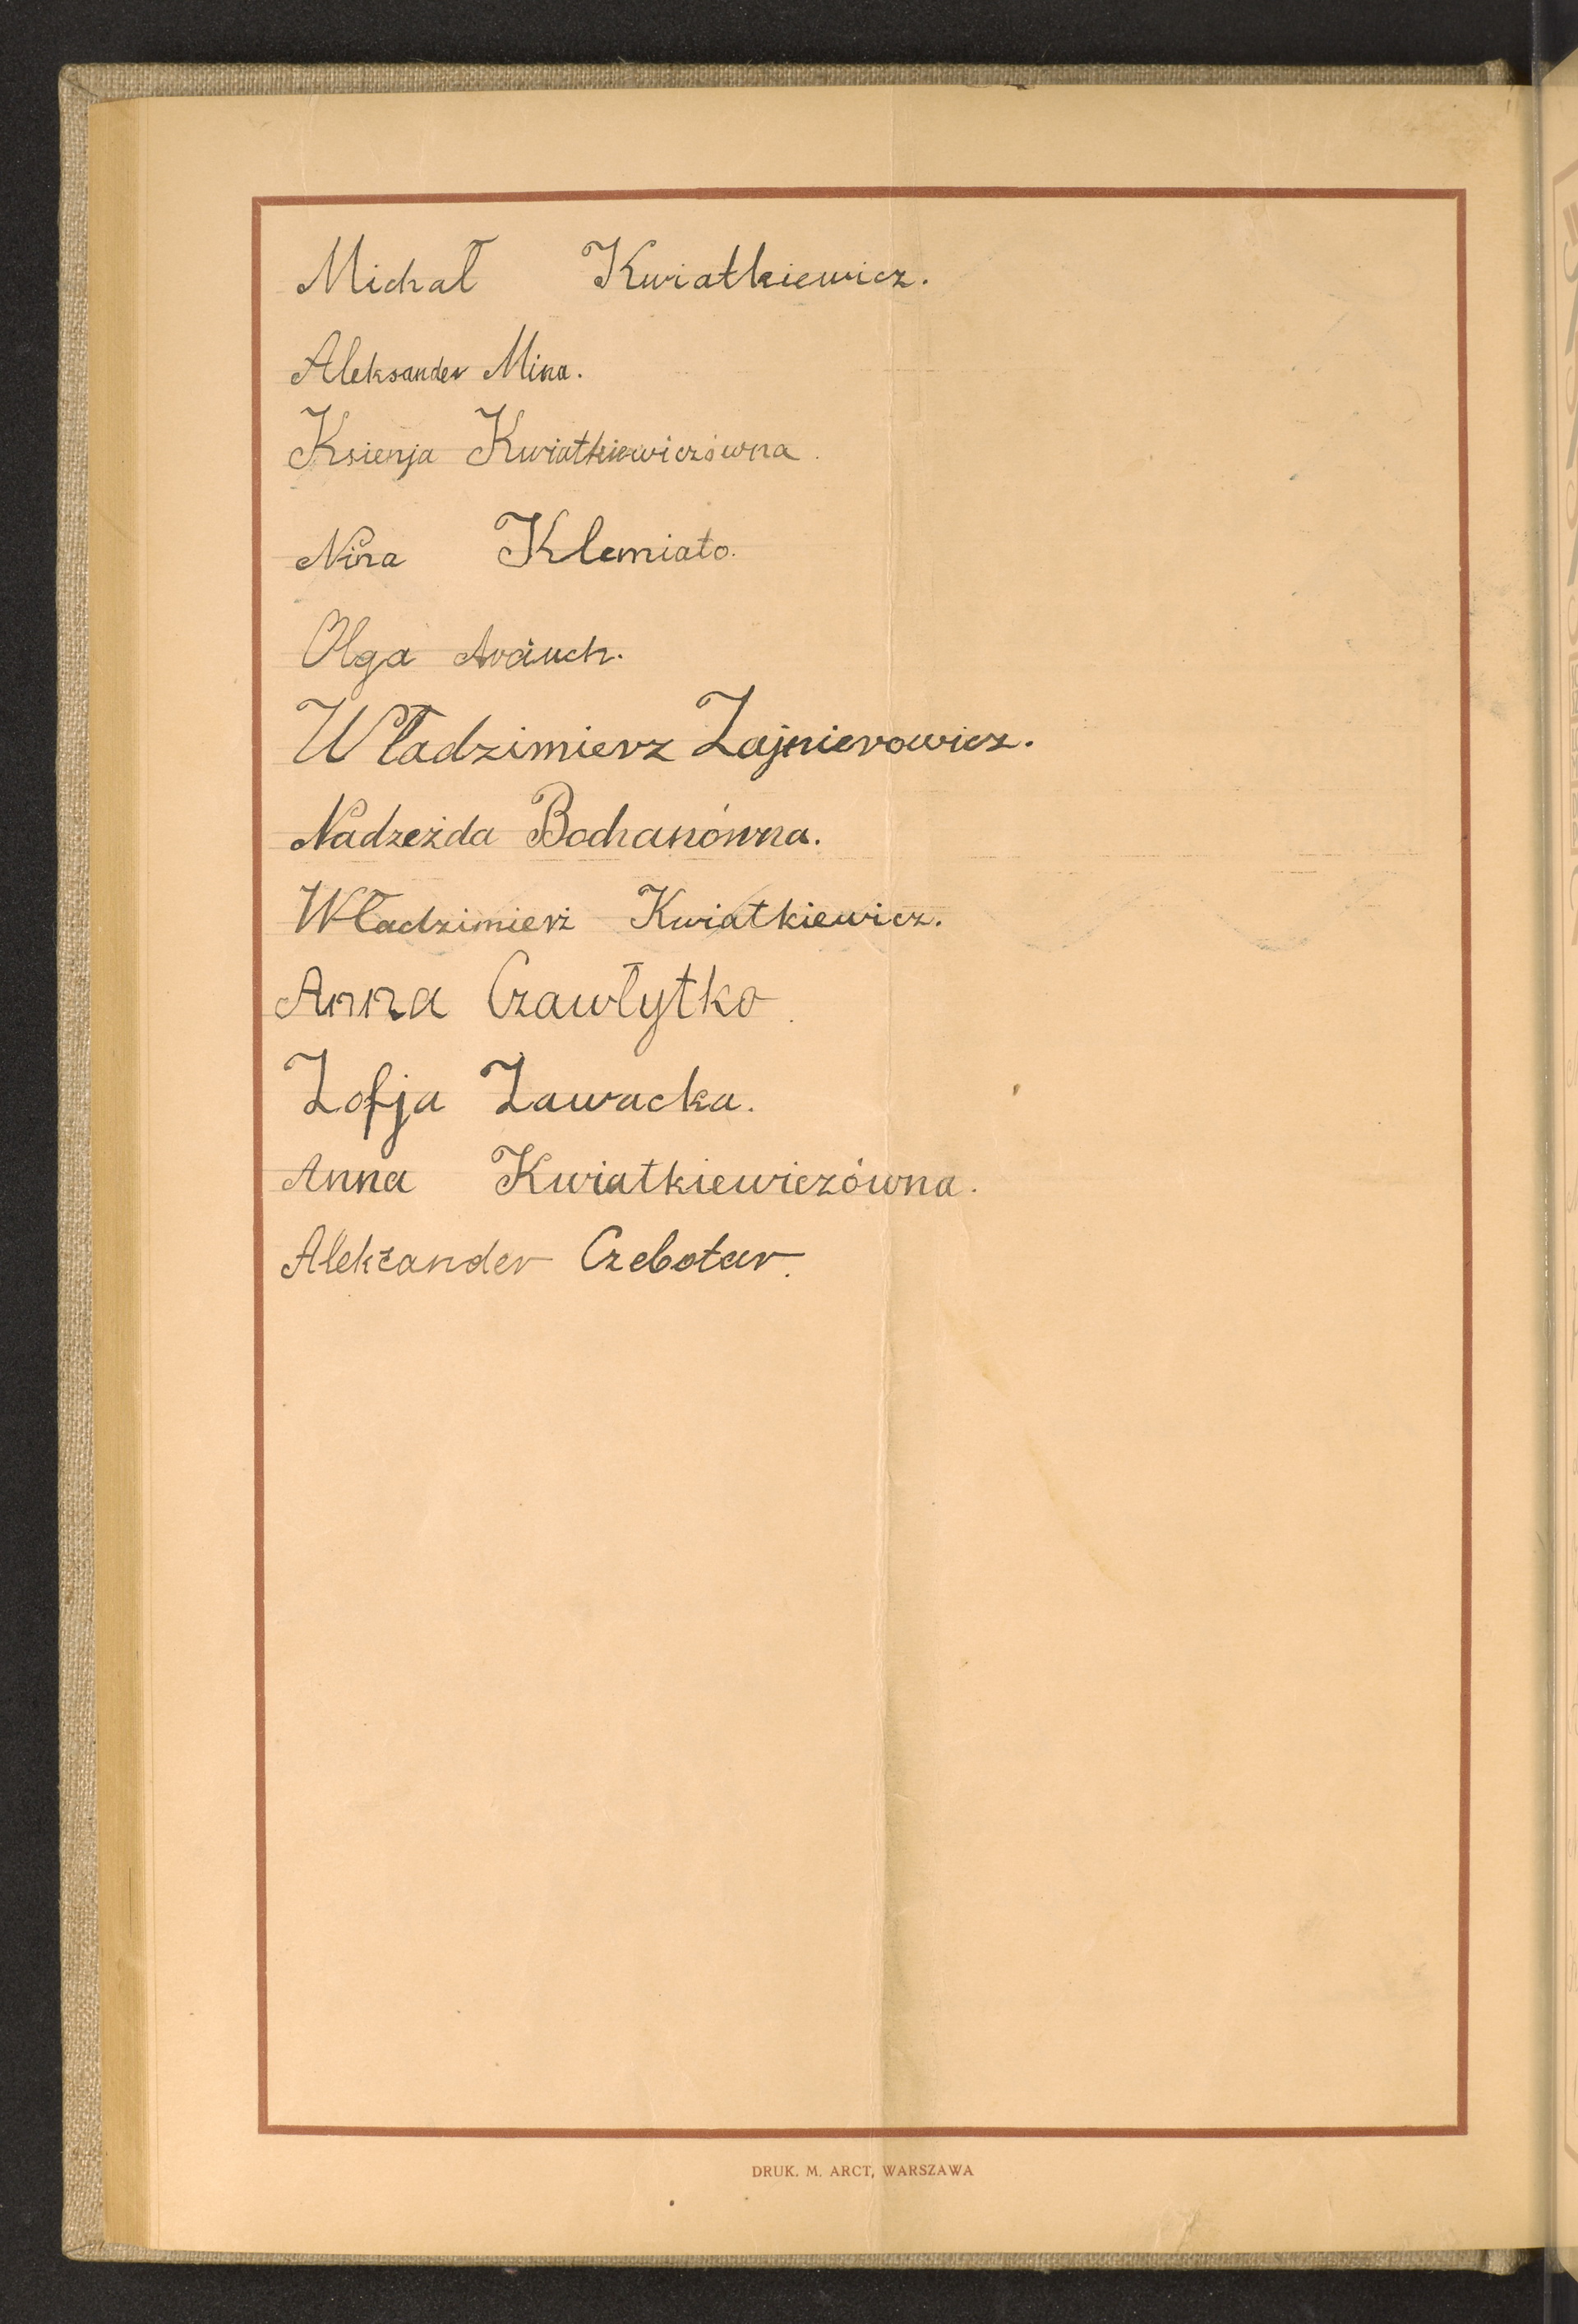 Michał Kwiatkiewicz.
Aleksander Mina.
Ksienja Kwiatkiewiczówna.
Nina Klemiato.
Olga
Władzimierz Zajnierowicz.
Nadzeżda Bochanówna.
Władzimierż Kwiatkiewicz.
Anna Czawłytko.
Zofja Zawacka.
Anna Kwiatkiewiczówna.
Alekzander Czebotar.
DRUK. M. ARCT, WARSZAWA